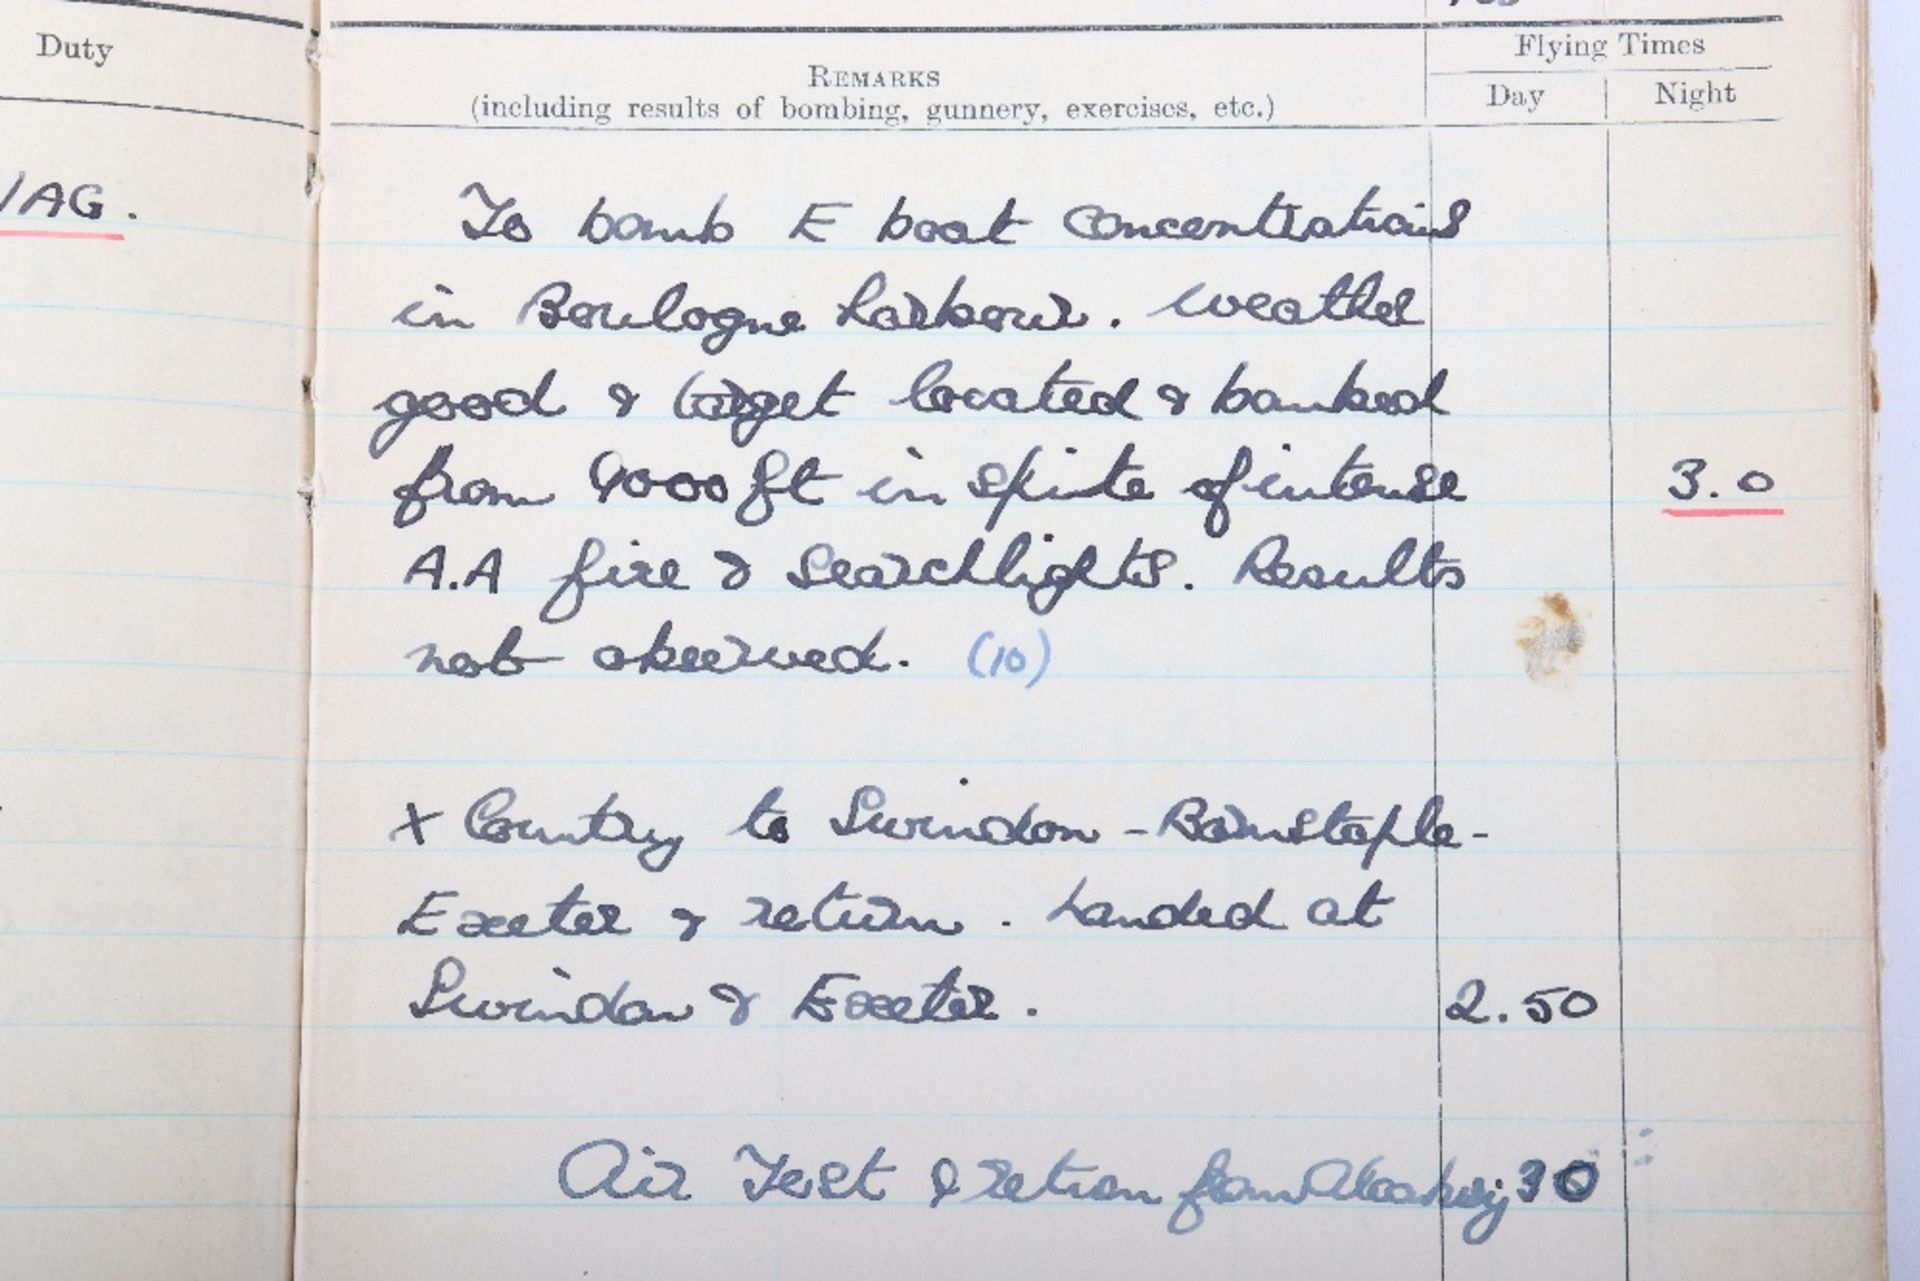 Duty
REMARKS
(including results of bombing, gunnery, exercises, etc.)
Flying Times
Day Night
/AG.
To bomb E boat concentrations
in Boulogne harbour. Weather
good & target located & bombed
from 9000 ft in spite of intense 3.0
A.A fire & searchlights. Results
not observed. (10)
X Country to Swindon - Barnstaple -
Exeter & return. Landed at
Swindon & Exeter. 2.50
Air Test & return from 30